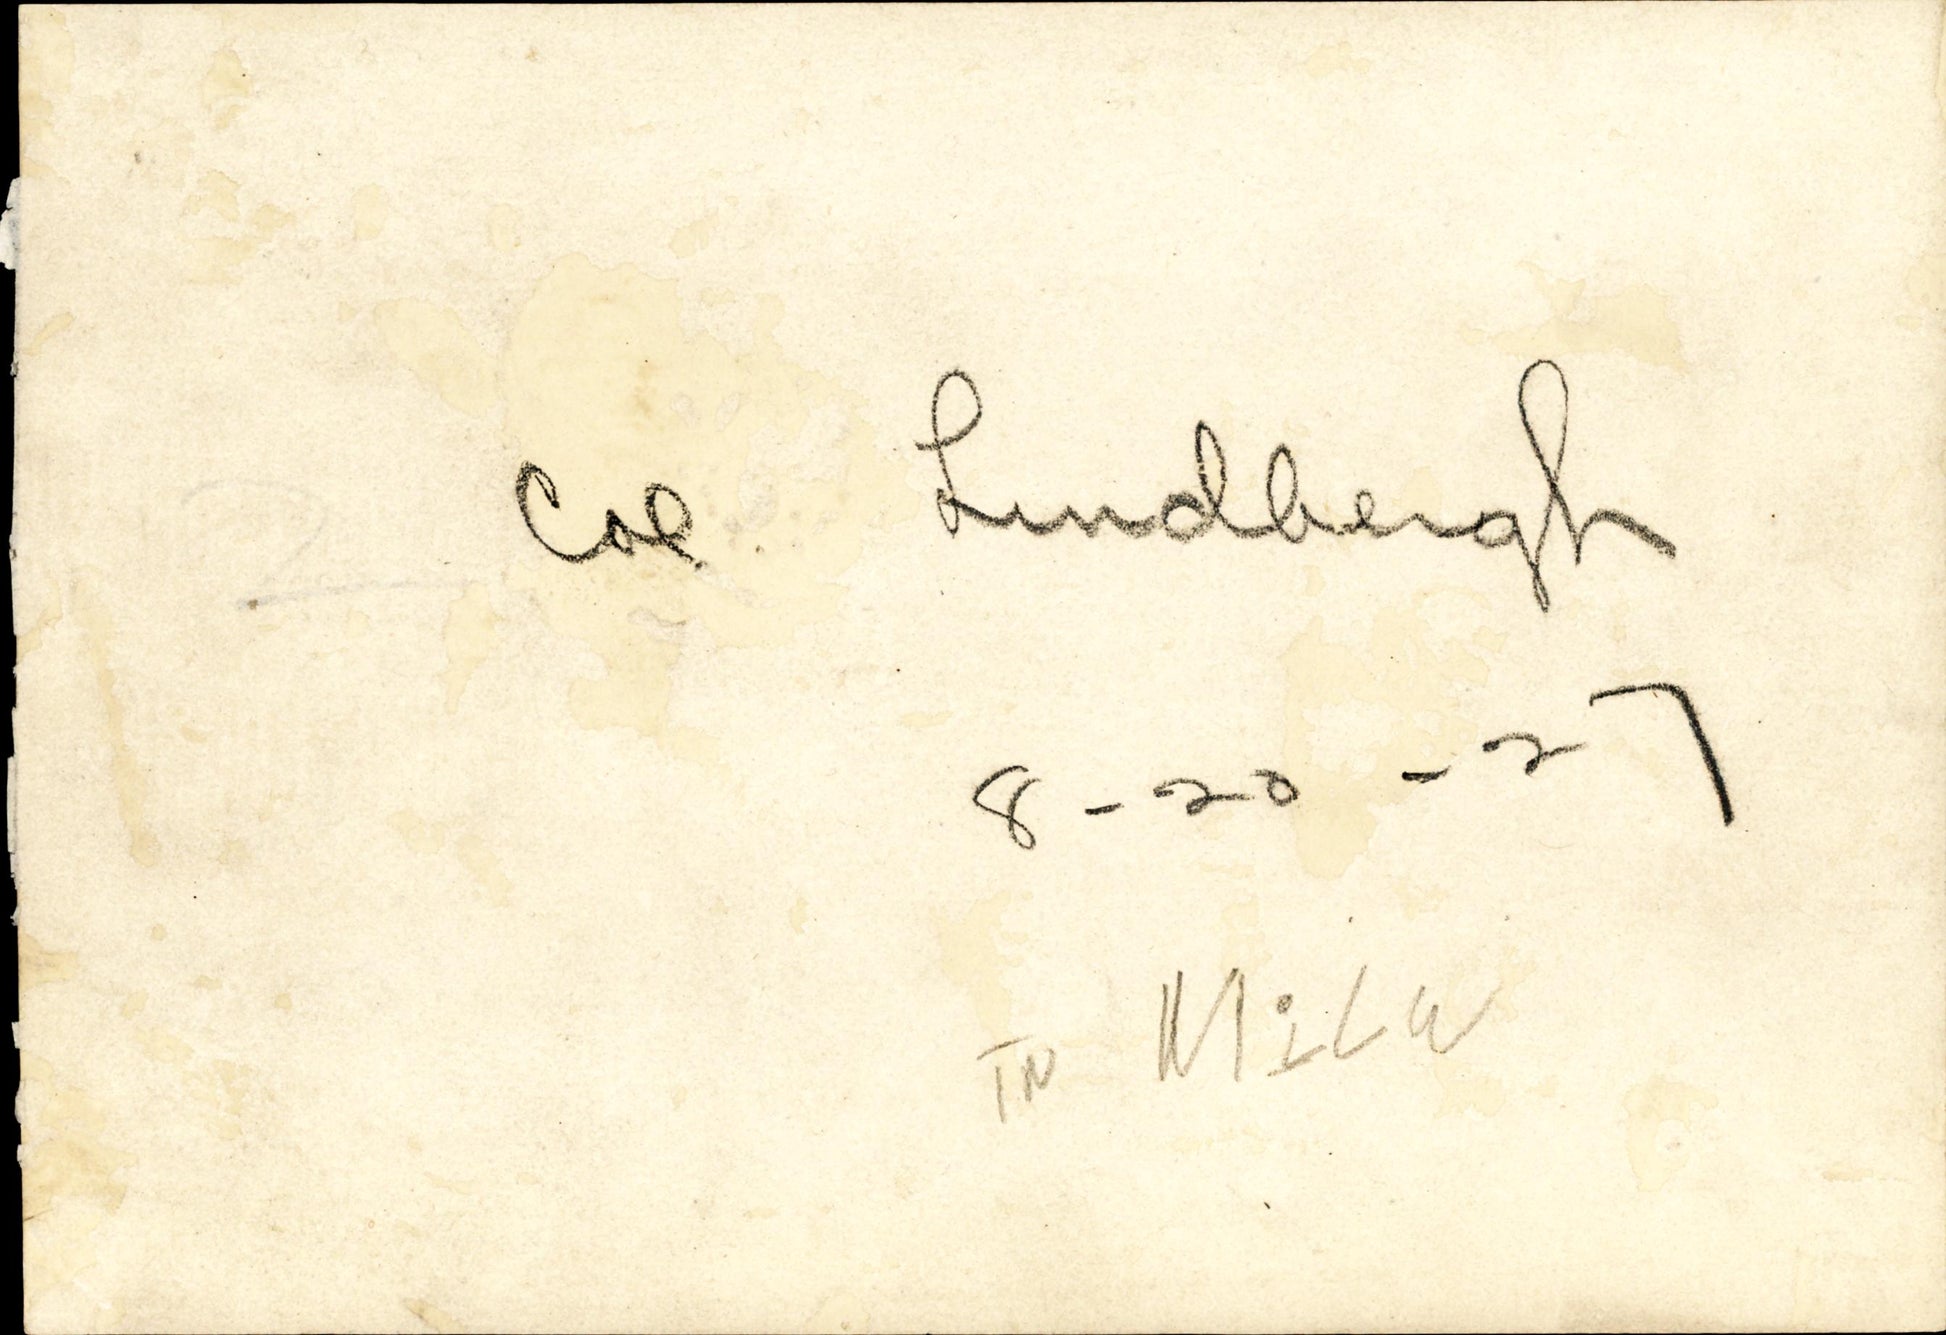 Col. Lindbergh
8-20-27
IN MiLW